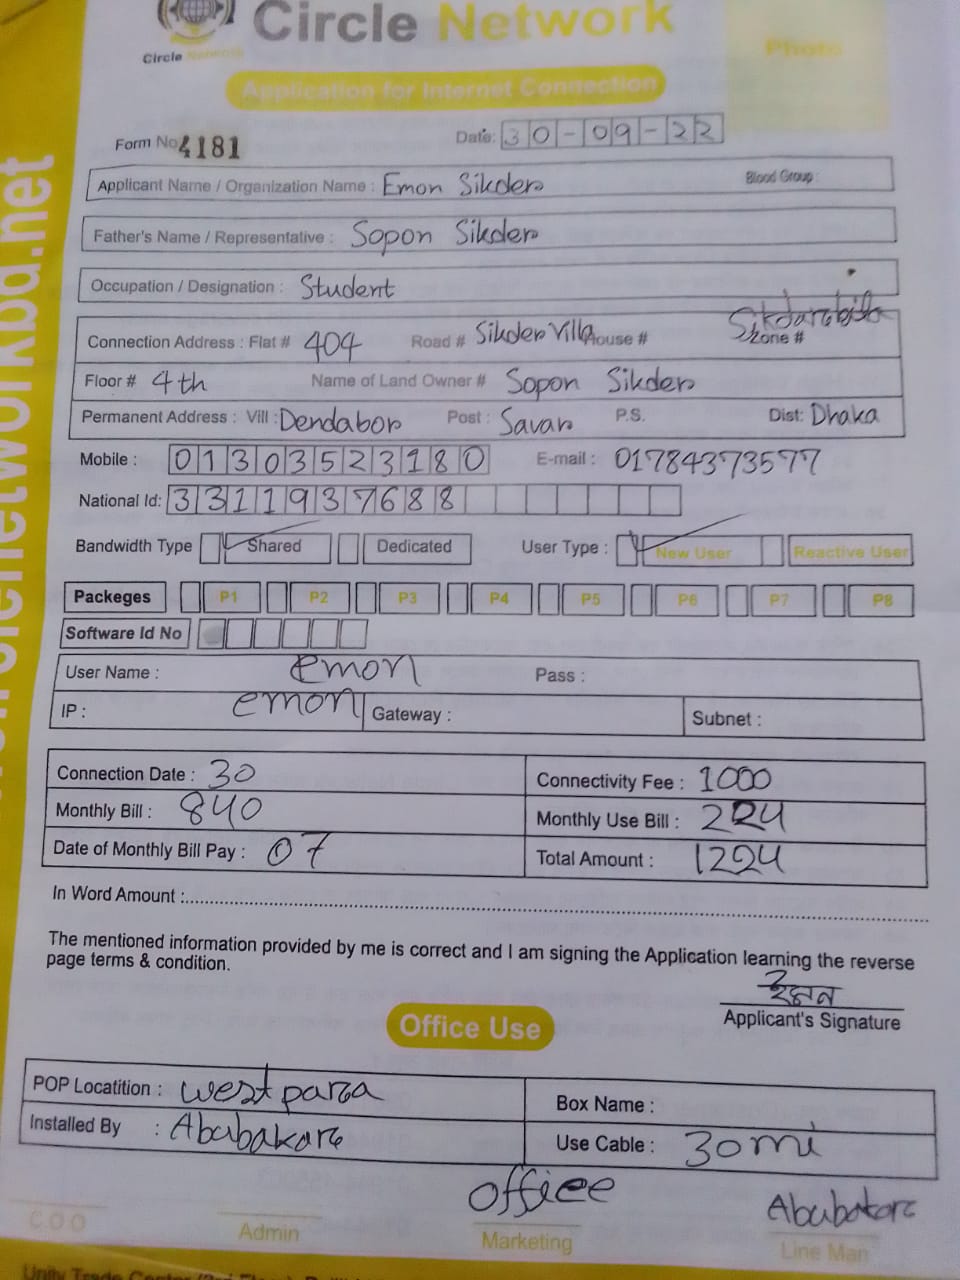 Circle Network
Circle Network
Photo
Application for Internet Connection
Form No 4181
Date: 30-09-22
Applicant Name / Organization Name : Emon Sikder
Blood Group :
Father's Name / Representative : Sopon Sikder
Occupation / Designation : Student
Connection Address : Flat # 404 Road # Sikder Villa House # Zone #
Floor # 4th Name of Land Owner # Sopon Sikder
Permanent Address : Vill : Dendabor Post : Savar P.S. Dist: Dhaka
Mobile : 01303523180 E-mail : 01784373577
National Id: 3311937688
Bandwidth Type Shared Dedicated User Type : New User Reactive User
Packeges P1 P2 P3 P4 P5 P6 P7 P8
Software Id No
User Name : emon Pass :
IP : emon Gateway : Subnet :
Connection Date : 30 Connectivity Fee : 1000
Monthly Bill : 840 Monthly Use Bill : 224
Date of Monthly Bill Pay : 07 Total Amount : 1224
In Word Amount :
The mentioned information provided by me is correct and I am signing the Application learning the reverse
page terms & condition.
ইমন
Applicant's Signature
Office Use
POP Locatition : westpara Box Name :
Installed By : Abubakare Use Cable : 30mi
officee Abubakare
C.O.O Admin Marketing Line Man